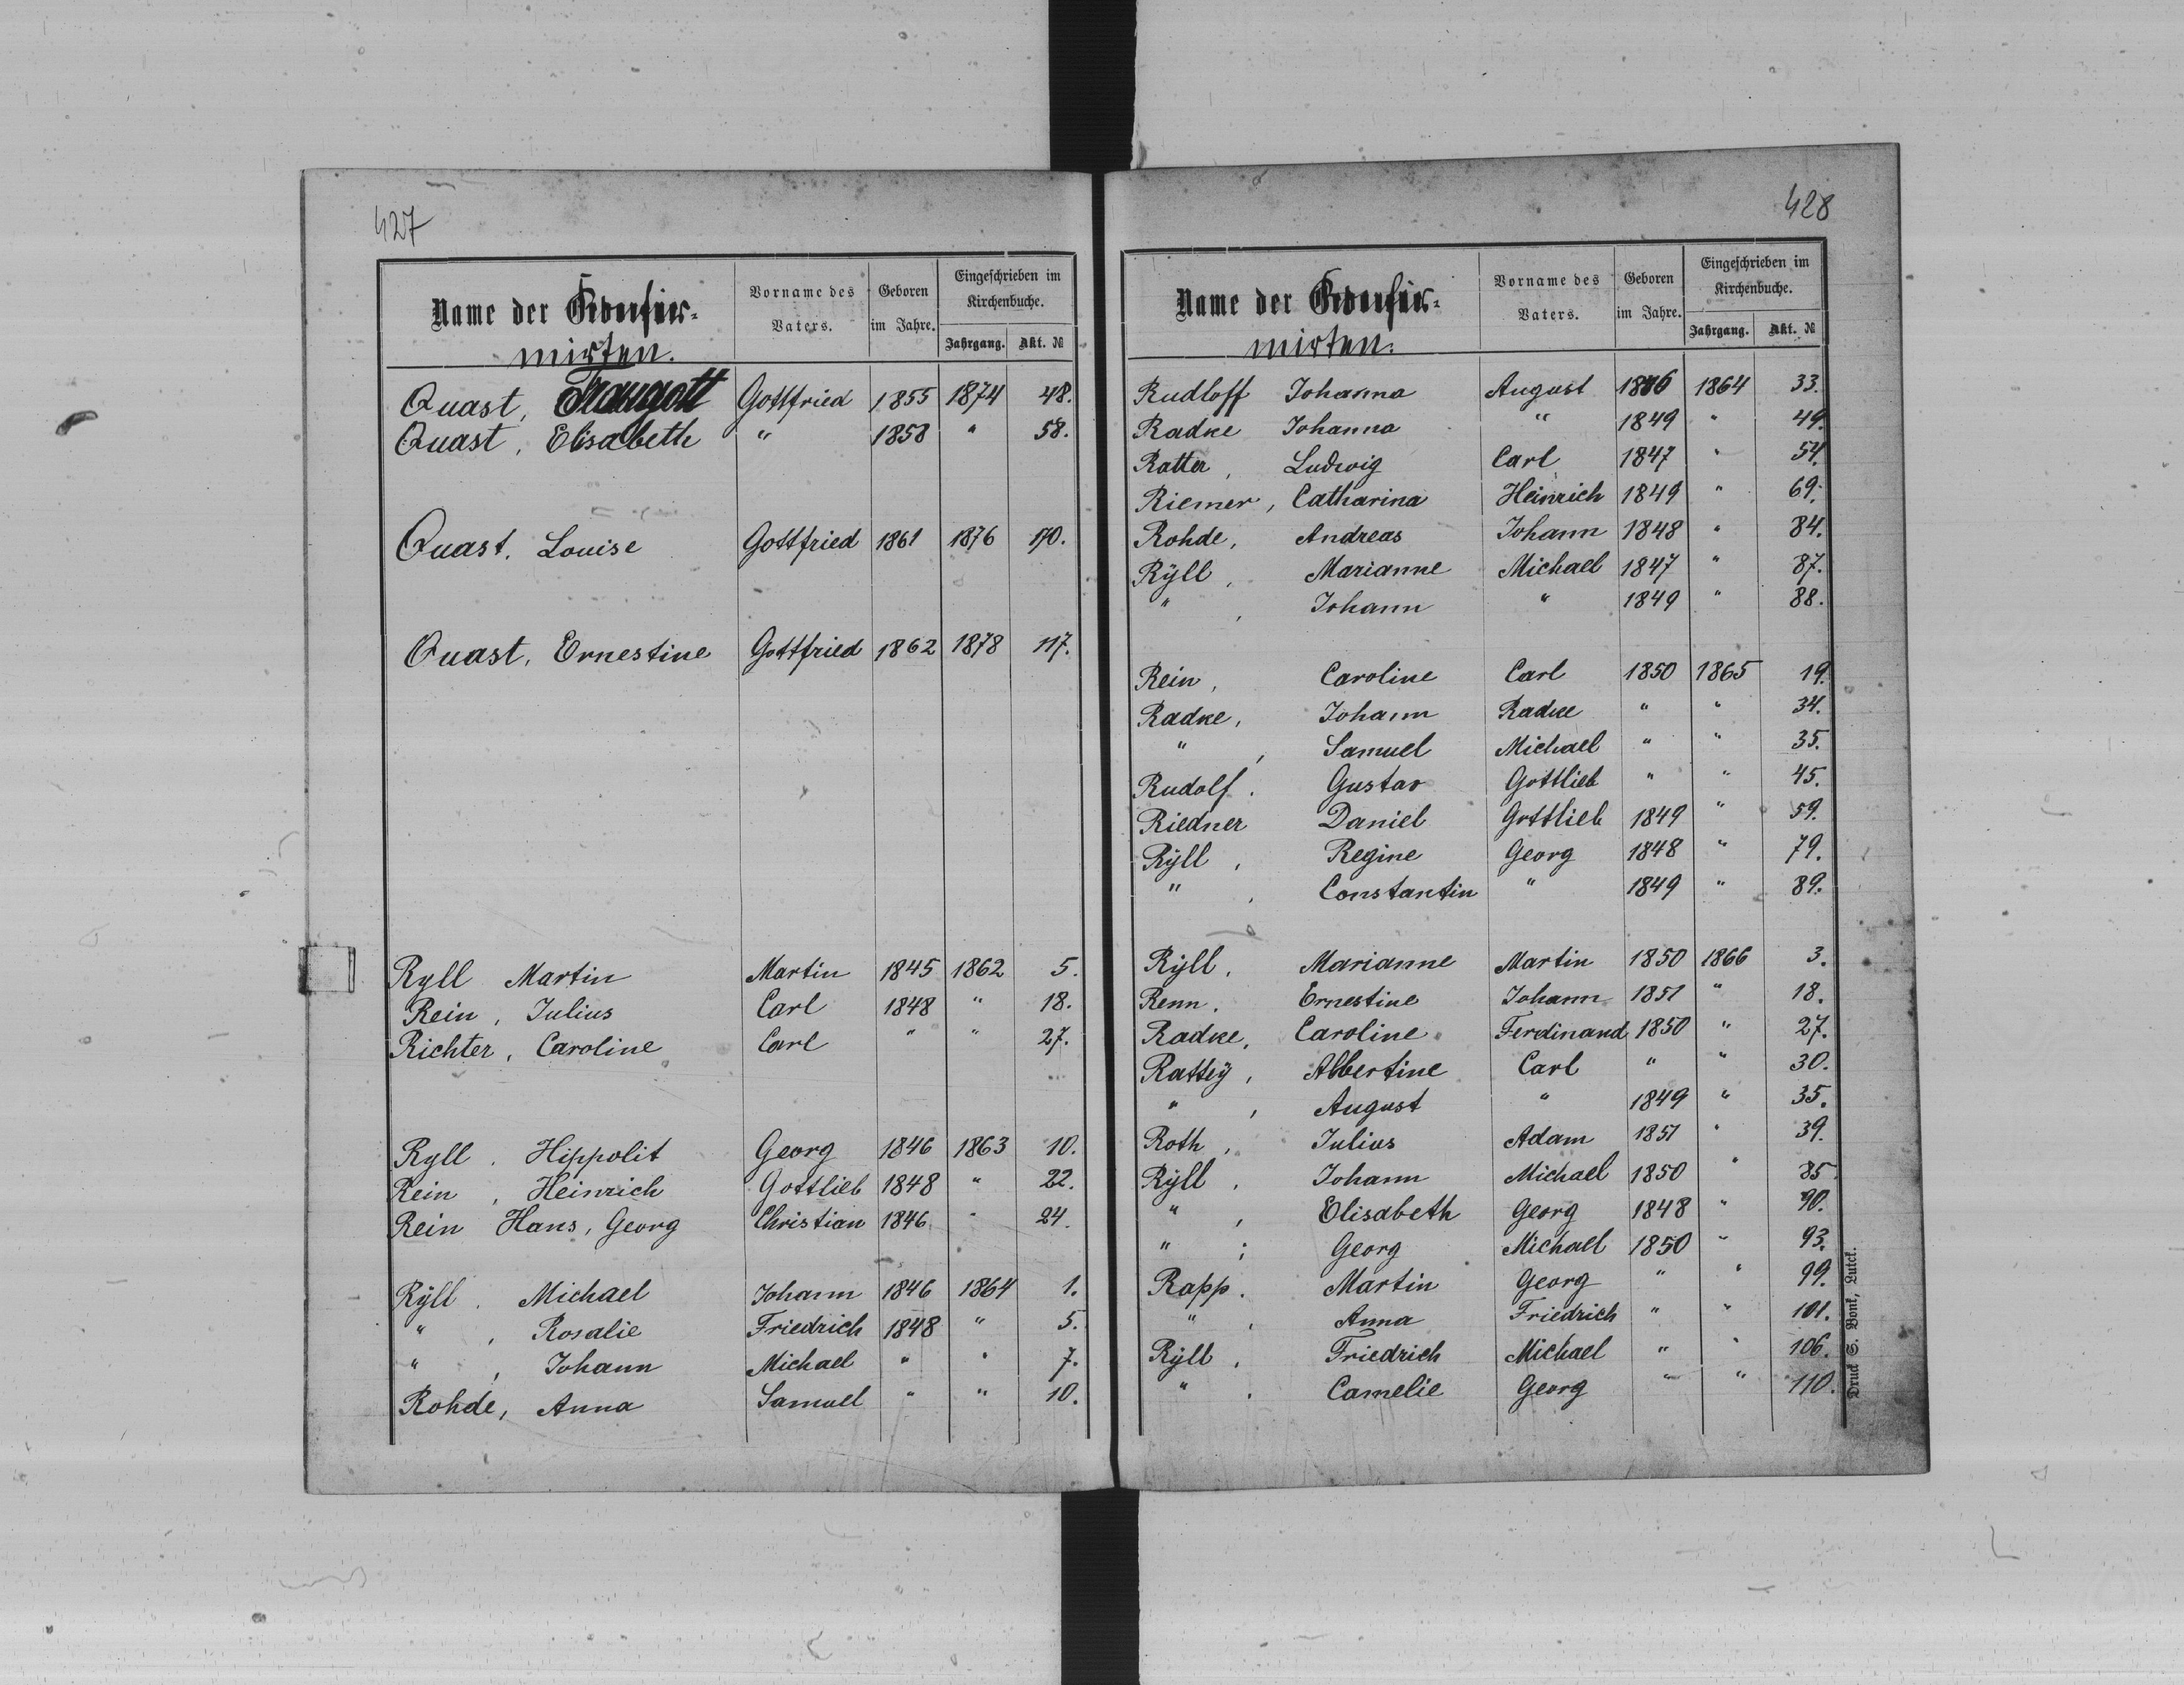 427
Name der Confir-
mirten.
Vorname des Vaters.
Geboren im Jahre.
Eingeschrieben im Kirchenbuche.
Jahrgang. Akt. №
Quast, Traugott Gottfried 1855 1874 48.
Quast, Elisabeth " 1858 " 58.
Quast. Louise Gottfried 1861 1876 170.
Quast, Ernestine Gottfried 1862 1878 117.
Ryll Martin Martin 1845 1862 5.
Rein, Julius Carl 1848 " 18.
Richter, Caroline Carl " " 27.
Ryll. Hippolit Georg 1846 1863 10.
Rein, Heinrich Gottlieb 1848 " 22.
Rein Hans, Georg Christian 1846 " 24.
Rÿll. Michael Johann 1846 1864 1.
" , Rosalie Friedrich 1848 " 5.
" , Johann Michael " " 7.
Rohde, Anna Samuel " " 10.
428
Name der Confir-
mirten.
Vorname des Vaters.
Geboren im Jahre.
Eingeschrieben im Kirchenbuche.
Jahrgang. Akt. №
Rudloff Johanna August 1846 1864 33.
Radke Johanna " 1849 " 49.
Ratter, Ludwig Carl 1847 " 54.
Riemer, Catharina Heinrich 1849 " 69.
Rohde, Andreas Johann 1848 " 84.
Rÿll, Marianne Michael 1847 " 87.
" , Johann " 1849 " 88.
Rein, Caroline Carl 1850 1865 19.
Radke, Johann Radke " " 34.
" , Samuel Michael " " 35.
Rudolf. Gustav Gottlieb " " 45.
Riedner Daniel Gottlieb 1849 " 59.
Rÿll, Regine Georg 1848 " 79.
" , Constantin " 1849 " 89.
Rÿll, Marianne Martin 1850 1866 3.
Renn. Ernestine Johann 1851 " 18.
Radke, Caroline Ferdinand 1850 " 27.
Rattëy, Albertine Carl " " 30.
" , August " 1849 " 35.
Roth, Julius Adam 1851 " 39.
Rÿll, Johann Michael 1850 " 85.
" , Elisabeth Georg 1848 " 90.
" ; Georg Michael 1850 " 93.
Rapp. Martin Georg " " 99.
" , Anna Friedrich " " 101.
Rÿll, Friedrich Michael " " 106.
" , Camelie Georg " " 110.
Druck S. Bonk, Luck.